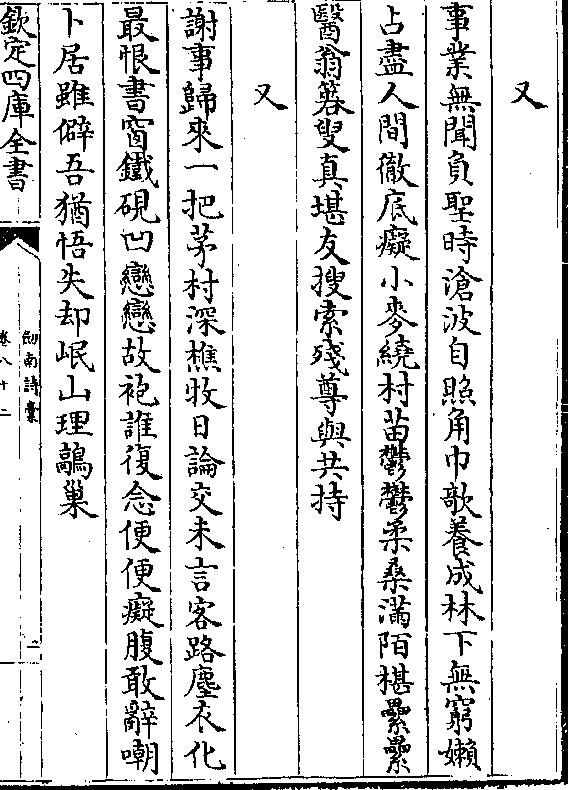 又
事業無聞負聖時滄波自照角巾欹養成林下無窮嬾
占盡人間徹底癡小麥繞村苗鬱鬱柔桑滿陌椹纍纍
醫翁箬叟真堪友搜索殘尊與共持
又
謝事歸來一把茅村深樵牧日論交未言客路塵衣化
最恨書窗鐵硯凹戀戀故袍誰復念便便癡腹敢辭嘲
卜居雖僻吾猶悟失却岷山理鷾巢
欽定四庫全書
劒南詩稾
卷八十二
二